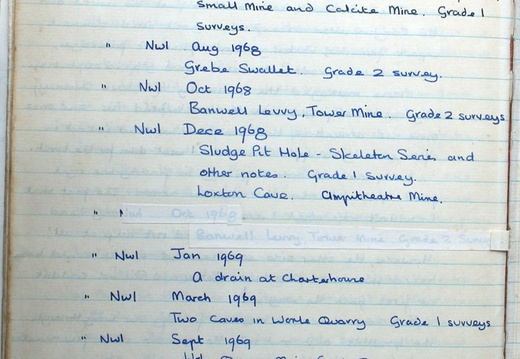 Small Mine and Calcite Mine. Grade 1
surveys.
" Nwl Aug 1968
Grebe Swallet. Grade 2 survey.
" Nwl Oct 1968
Banwell Levvy, Tower Mine. Grade 2 surveys
" Nwl Dece 1968
Sludge Pit Hole - Skeleton Series and
other notes. Grade 1 survey.
Loxton Cave. Ampitheatre Mine.
" Nwl Oct 1968
Banwell Levvy Tower Mine Grade 2 Survey
" Nwl Jan 1969
A drain at Charterhouse
" Nwl March 1969
Two caves in Worle Quarry Grade 1 surveys
" Nwl Sept 1969